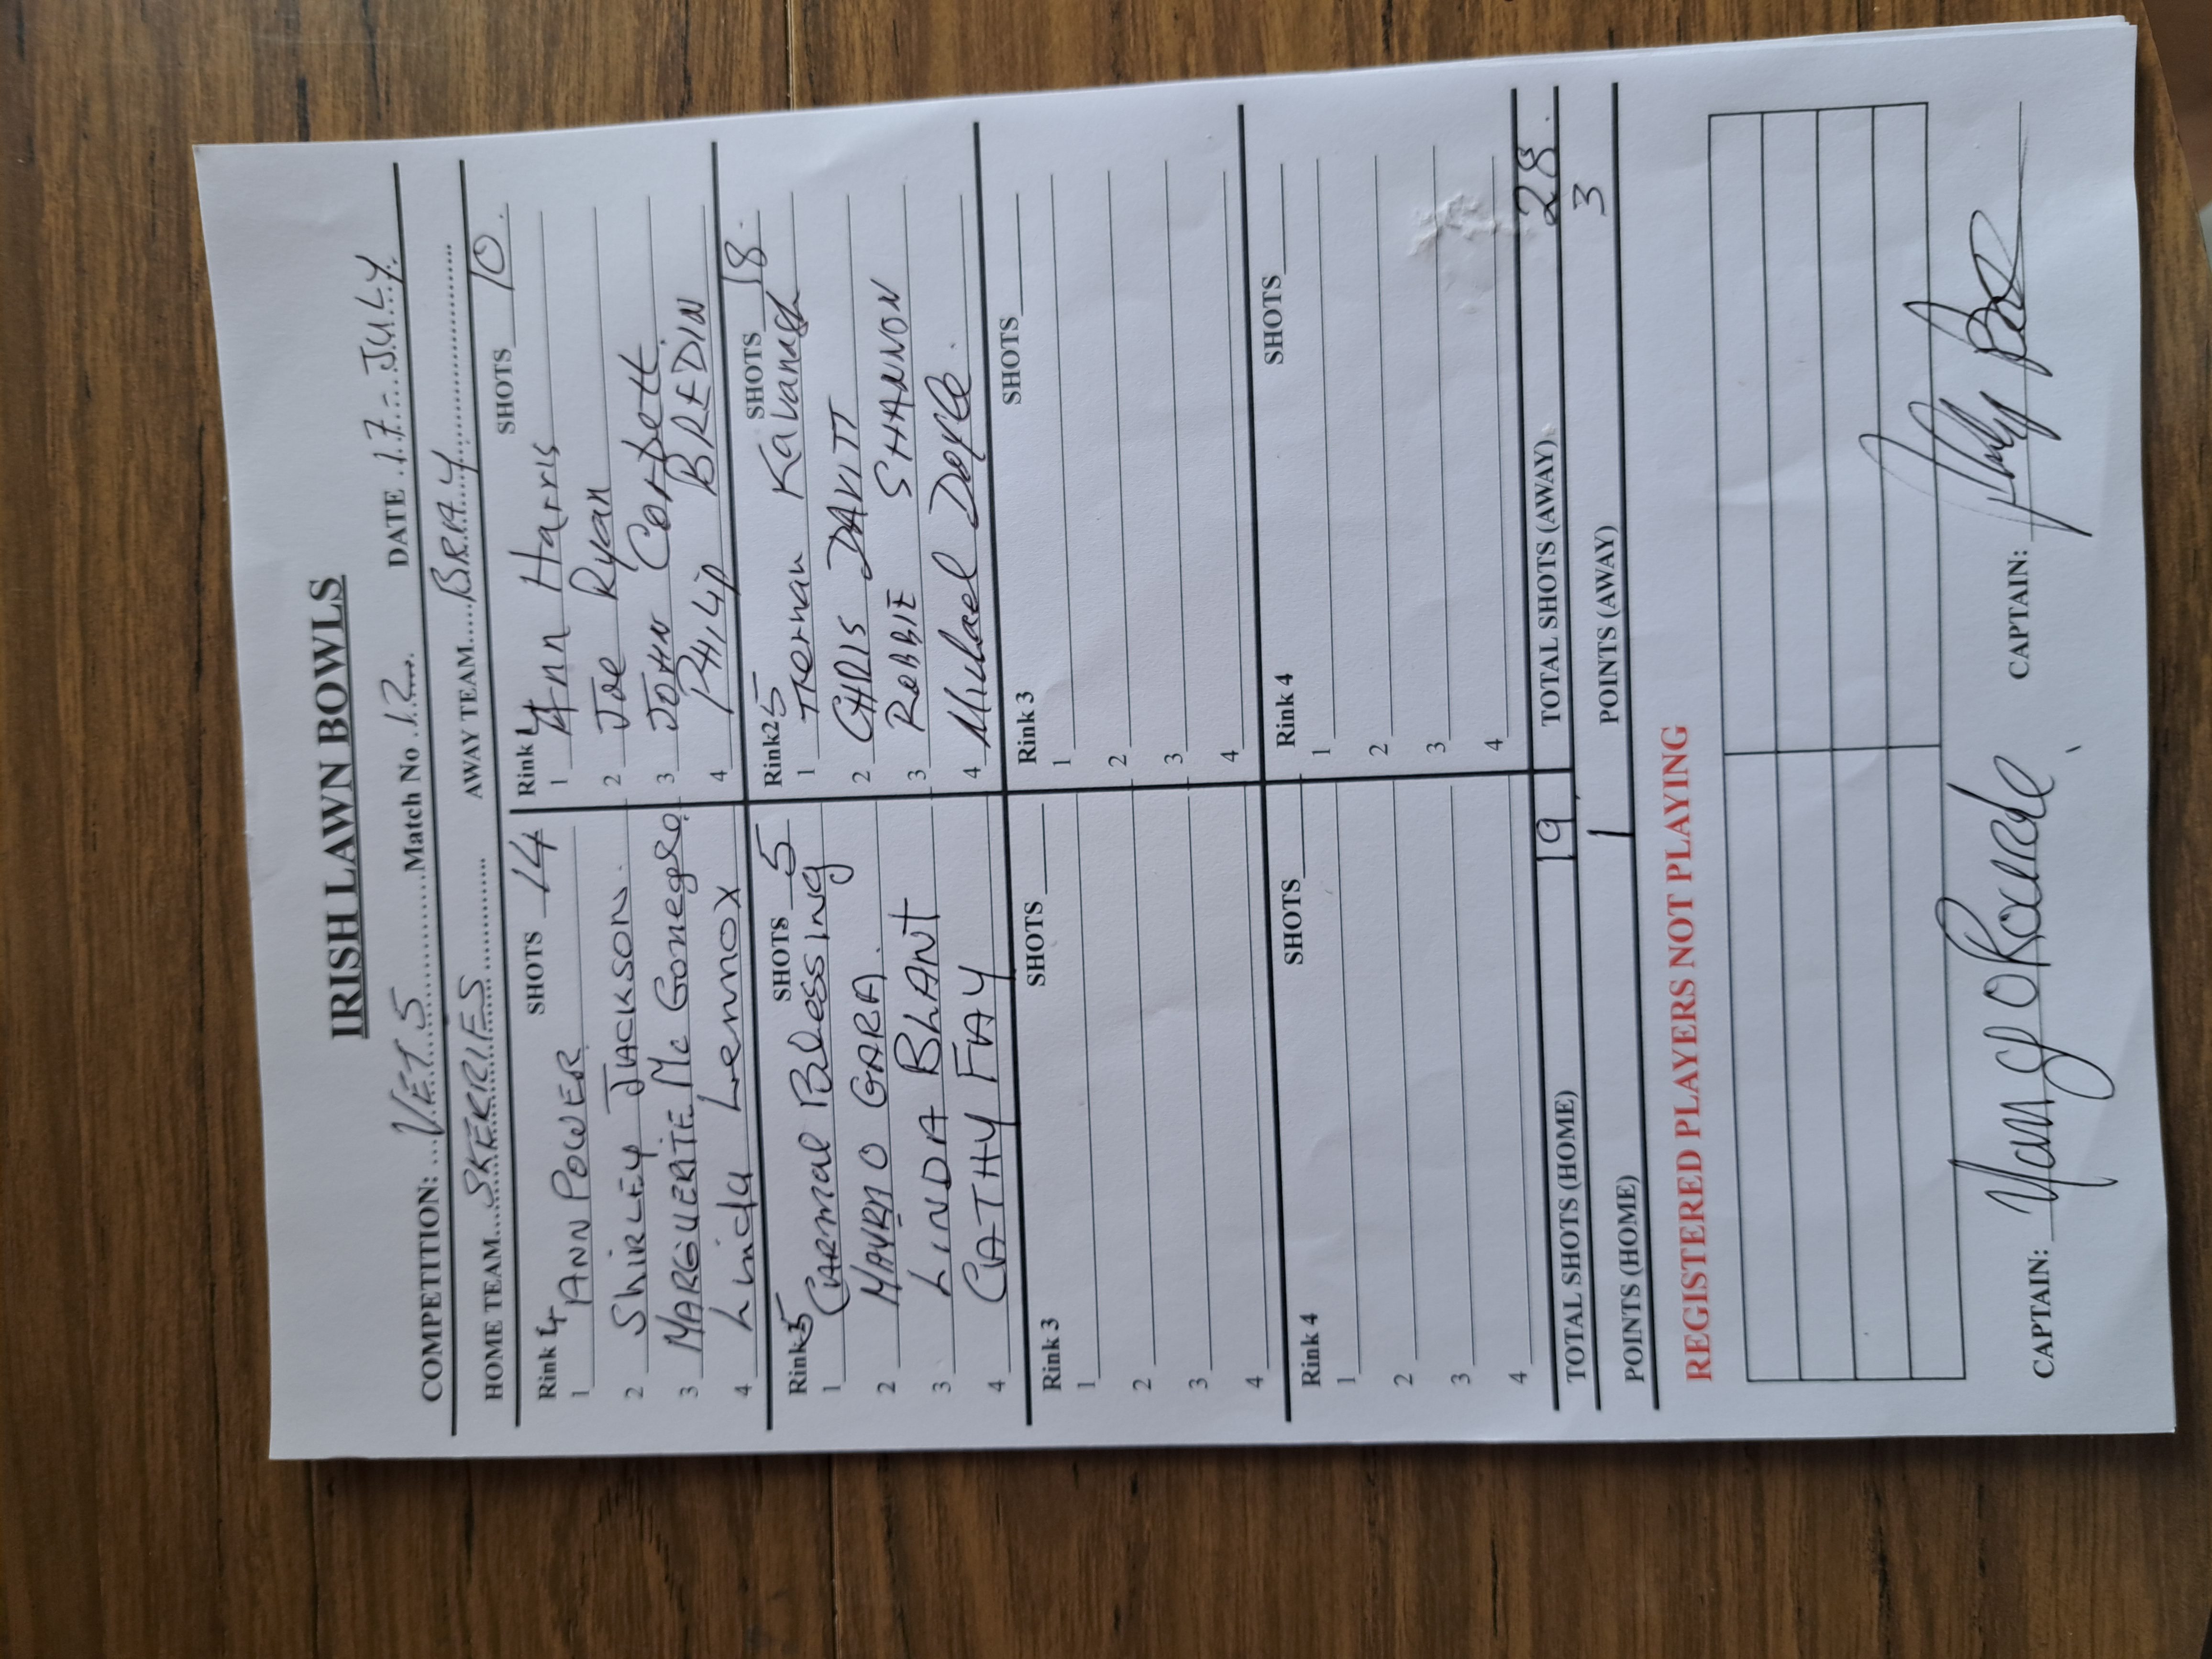 IRISH LAWN BOWLS
COMPETITION: VETS Match No 12 DATE 17 - JULY
HOME TEAM SKERRIES AWAY TEAM BRAY
Rink 4 SHOTS 14
1 ANN POWER
2 ShiRLEY JACKSON
3 MARGUERITE Mc Gonegle
4 Linda Lennox
Rink 5 SHOTS 5
1 CARMAL Bolessing
2 MAURA O GARA.
3 LINDA BhANT
4 CATHY FAY
Rink 3 SHOTS
1
2
3
4
Rink 4 SHOTS
1
2
3
4
TOTAL SHOTS (HOME) 19
POINTS (HOME) 1
Rink 4 SHOTS 10.
1 Ann Harris
2 Joe Ryan
3 JOHN Corbett
4 PHILIP BREDIN
Rink 5 SHOTS 18.
1 Kavanagh
2 CHRIS DAVITT
3 ROBBIE SHANNON
4 Michael Doyle.
Rink 3 SHOTS
1
2
3
4
Rink 4 SHOTS
1
2
3
4
TOTAL SHOTS (AWAY) 28.
POINTS (AWAY) 3
REGISTERED PLAYERS NOT PLAYING
CAPTAIN: CAPTAIN: